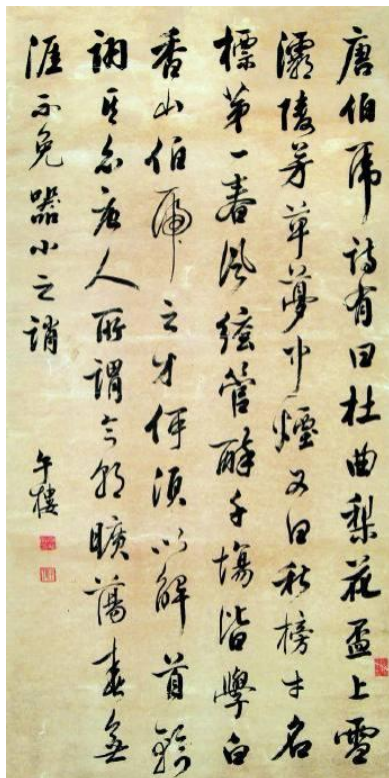 唐伯虎詩有曰杜曲梨花盃上雪
灞陵芳草夢中煙又曰秋榜才名
標第一春風絃管醉千場皆學白
香山伯虎之才何須以解首誇
詡其唐人所謂今朝曠蕩春無
涯不免器小之誚
午樓